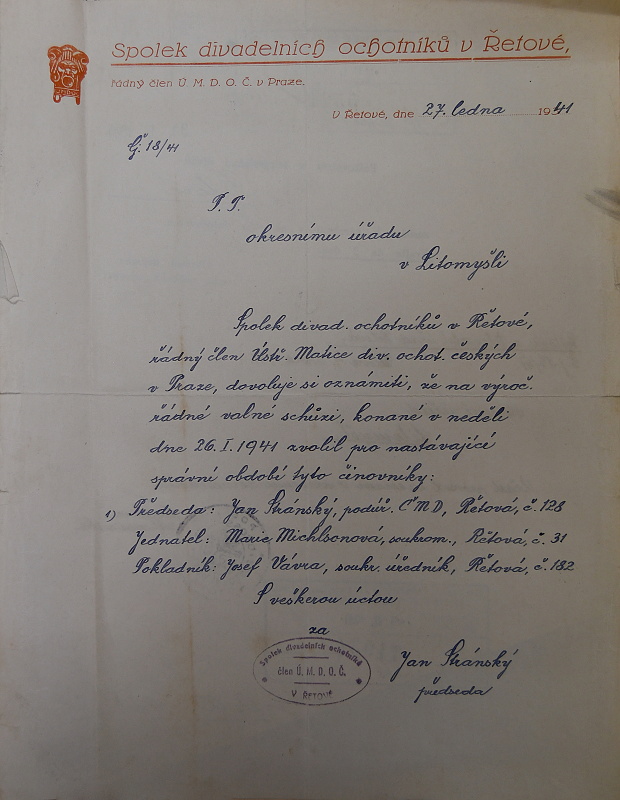 Spolek divadelních ochotníků v Řetové,
řádný člen Ú. M. D. O. Č. v Praze.
V Řetové, dne 27. ledna 1941
Č: 18/41
P. T.
okresnímu úřadu
v Litomyšli
Spolek divad. ochotníků v Řetové,
řádný člen Ústř. Matice div. ochot. českých
v Praze, dovoluje si oznámiti, že na výroč.
řádné valné schůzi, konané v neděli
dne 26. I. 1941 zvolil pro nastávající
správní období tyto činovníky:
1) Předseda: Jan Stránský, podúř. ČMD, Řetová, č. 128
Jednatel: Marie Michlsonová, soukrom., Řetová, č. 31
Pokladník: Josef Vávra, soukr. úředník, Řetová, č. 182
S veškerou úctou
za
Spolek divadelních ochotníků
člen Ú. M. D. O. Č.
V ŘETOVÉ
Jan Stránský
předseda